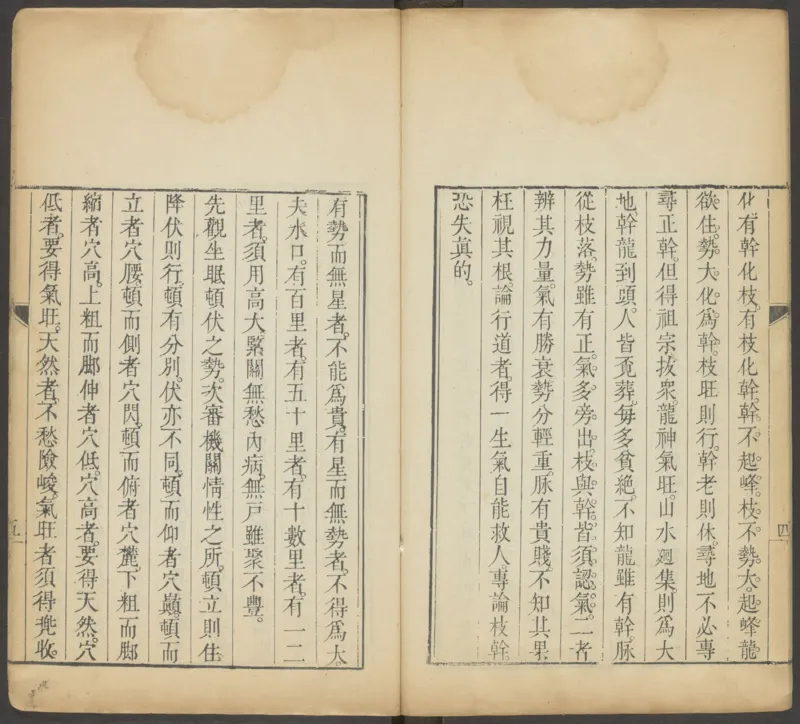 化有幹化枝。有枝化幹。幹不起峰。枝不勢大。起峰龍
欲住。勢大化爲幹。枝旺則行。幹老則休。尋地不必專
尋正幹。但得祖宗拔衆。龍神氣旺。山水廻集。則爲大
地。幹龍到頭。人皆覓葬。每多貧絶。不知龍雖有幹。脉
從枝落。勢雖有正。氣多旁出。枝與幹。皆須認氣。二者
辨其力量。氣有勝衰。勢分輕重。脉有貴賤。不知其果。
枉視其根。論行道者。得一生氣。自能救人。專論枝幹。
恐失真的。
四
有勢而無星者。不能爲貴。有星而無勢者。不得爲太。
夫水口。有百里者。有五十里者。有十數里者。有一二
里者。須用高大緊關。無愁內病。無戸雖聚不豐。
先觀坐眠頓伏之勢。次審機關情性之所。頓立則住
降伏則行。頓有分別。伏亦不同。頓而仰者穴巔。頓而
立者穴腰。頓而側者穴閃。頓而俯者穴麓。下粗而脚
縮者穴高。上粗而脚伸者穴低。穴高者。要得天然。穴
低者。要得氣旺。天然者。不愁險峻。氣旺者須得兠收。
五